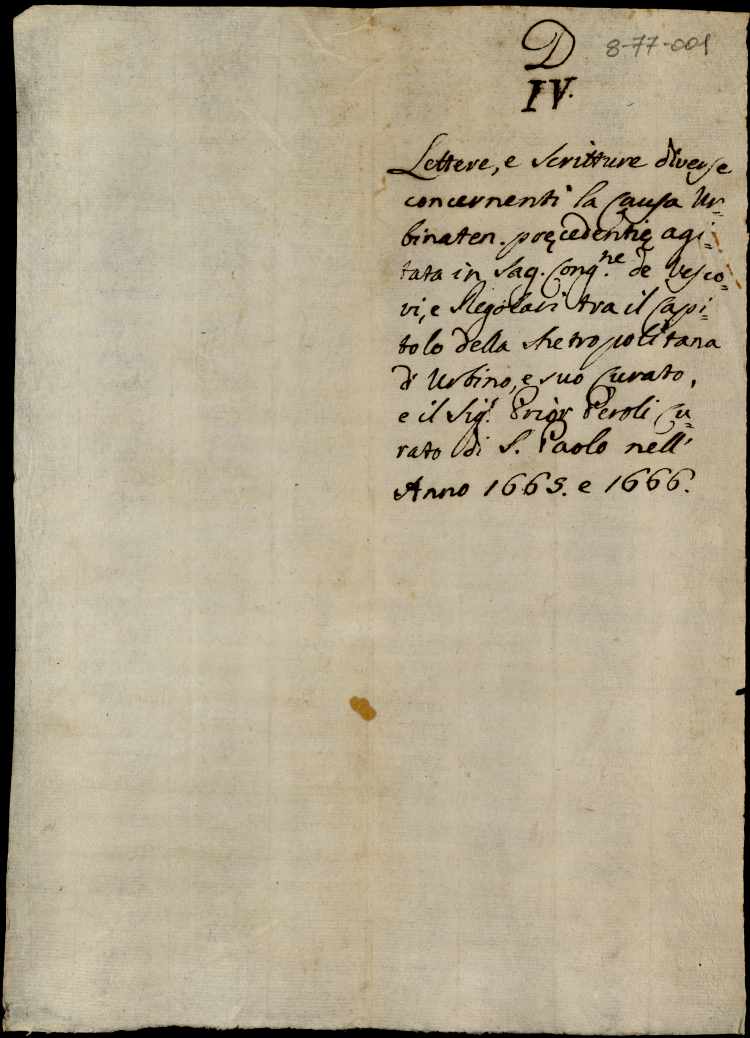 D 8-77-001
IV.
Lettere, e Scritture diverse
concernenti la Causa Ur=
binaten. pręcedentię agi=
tata in Sag. Cong.ne de Vesco=
vi, e Regolari tra il Capi=
tolo della Metropolitana
di Urbino, e suo Curato,
e il Sig.r Prior Peroli Cu=
rato di S. Paolo nell'
Anno 1665. e 1666.